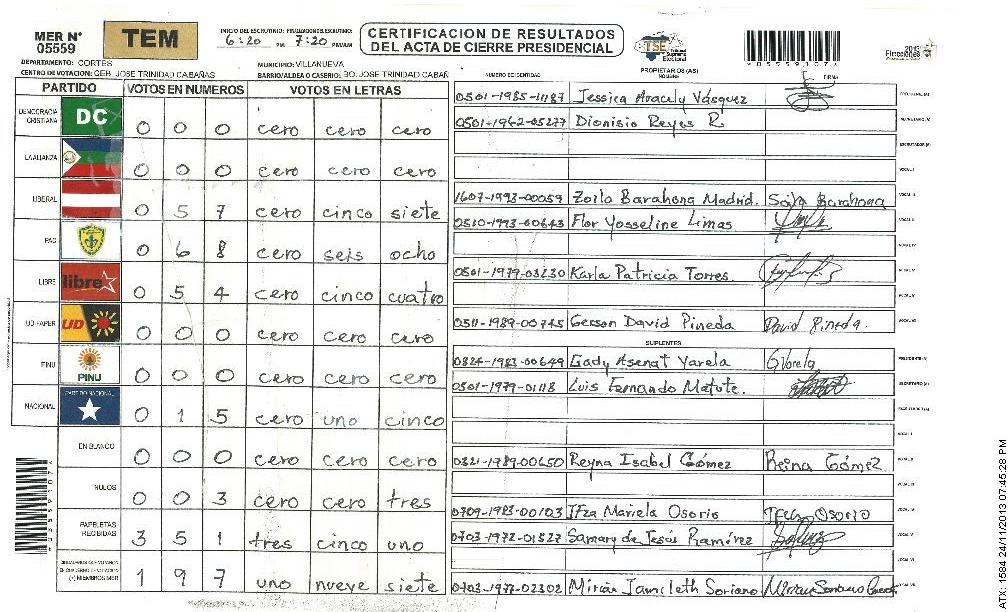 MER N° 05559
TEM
INICIO DEL ESCRUTINIO: FINALIZACION DEL ESCRUTINIO:
6:20 PM 7:20 PM/AM
CERTIFICACION DE RESULTADOS DEL ACTA DE CIERRE PRESIDENCIAL
TSE Tribunal Supremo Electoral
*05559107*
2013 Elecciones
DEPARTAMENTO: CORTES
MUNICIPIO: VILLANUEVA
CENTRO DE VOTACION: CEB. JOSE TRINIDAD CABAÑAS
BARRIO/ALDEA O CASERIO: BO. JOSE TRINIDAD CABAÑ
NUMERO DE IDENTIDAD PROPIETARIOS (AS) NOMBRE FIRMA
PARTIDO VOTOS EN NUMEROS VOTOS EN LETRAS
DEMOCRACIA CRISTIANA DC 0 0 0 cero cero cero
LA ALIANZA 0 0 0 cero cero cero
LIBERAL 0 5 7 cero cinco siete
PAC 0 6 8 cero seis ocho
LIBRE libre 0 5 4 cero cinco cuatro
UD-FAPER UD 0 0 0 cero cero cero
PINU PINU 0 0 0 cero cero cero
NACIONAL PARTIDO NACIONAL 0 1 5 cero uno cinco
EN BLANCO 0 0 0 cero cero cero
NULOS 0 0 3 cero cero tres
PAPELETAS RECIBIDAS 3 5 1 tres cinco uno
CIUDADANOS QUE VOTARON
(+) MIEMBROS MER 1 9 7 uno nueve siete
0501-1985-11187 Jessica Aracely Vásquez PRESIDENTE (A)
0501-1962-05277 Dionisio Reyes R. SECRETARIO (A)
ESCRUTADOR (A)
VOCAL I
1607-1993-00059 Zoila Barahona Madrid. Soila Barahona VOCAL II
0510-1993-00643 Flor Yosseline Limas VOCAL III
VOCAL IV
0501-1979-03230 Karla Patricia Torres. VOCAL V
VOCAL VI
0511-1989-00745 Gerson David Pineda David Pineda. VOCAL VII
SUPLENTES
0824-1983-00649 Gady Asenat Varela G Varela PRESIDENTE (A)
0501-1979-01118 Luis Fernando Matute. SECRETARIO (A)
ESCRUTADOR (A)
VOCAL I
0321-1989-00650 Reyna Isabel Gómez Reina Gómez VOCAL II
VOCAL III
0709-1983-00103 Ifza Mariela Osorio Osorio VOCAL IV
0703-1972-01527 Samary de Jesús Ramírez VOCAL V
VOCAL VI
0703-1977-02302 Mirian Jamileth Soriano Mirian Soriano VOCAL VII
*05559107*
ATX 1584 24/11/2013 07:45:28 PM